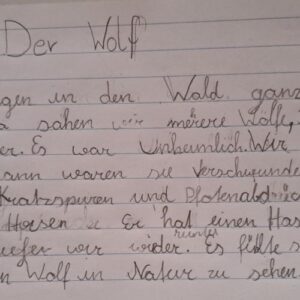 Der Wolf
gen in den Wald ganz
sahen wir merere Wölfe,
er. Es war Unheimlich. Wir
ann waren sie Verschwunden
Kratzspuren und Pfotenabdrück
Er hat einen Has
liefen wir runter wider. Es fühlte s
n Wolf in Natur zu sehen